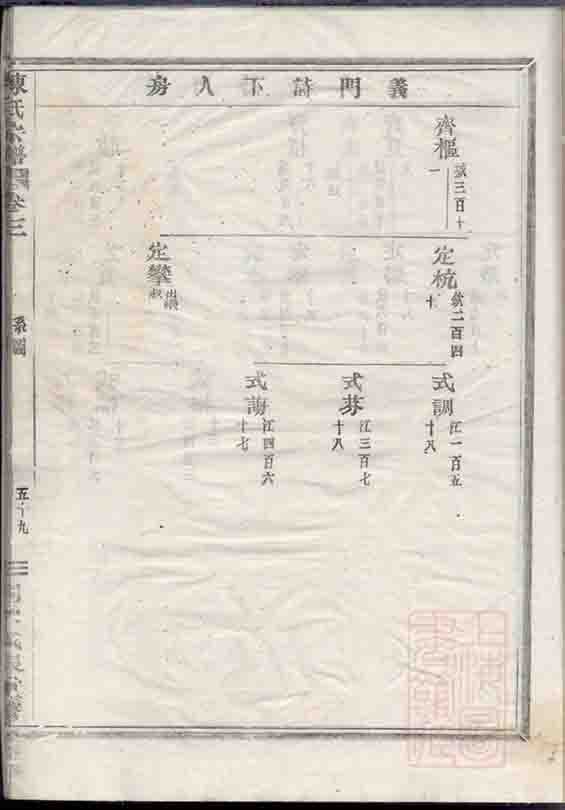 義門詩下八房
齊樞
三百十一
定杭
二百四十
定攀
出嗣叔
式調
江一百五十八
式棻
江三百七十八
式誨
江四百六十七
陳氏宗譜
卷三
系圖
五十九
上海圖書館藏